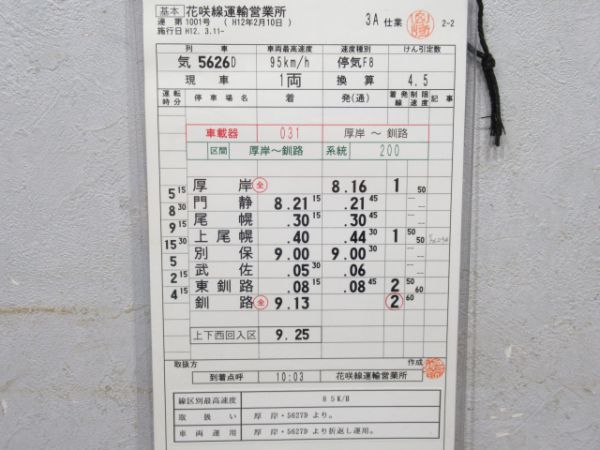 基本 花咲線運輸営業所 3A 仕業 2-2
運 第1001号 ( H12年2月10日 )
施行日H12. 3.11-
列車 車両最高速度 速度種別 けん引定数
気 5626D 95km/h 停気F8
現車 1両 換算 4.5
運転時分 停車場名 着 発(通) 着発線 制限速度 記事
車載器 031 厚岸 ～ 釧路
区間 厚岸～釧路 系統 200
厚岸 全 8.16 1 50
5 15
門静 8.21 15 .21 45
8 30
尾幌 .30 15 .30 45
9 15
上尾幌 .40 .44 30 1 50 50
15 30
別保 9.00 9.00 30
5
武佐 .05 30 .06
2 15
東釧路 .08 15 .08 45 2 50 60
4 15
釧路 全 9.13 2 60
上下西回入区 9.25
取扱方 作成
到着点呼 10:03 花咲線運輸営業所
線区別最高速度 85K/H
取扱い 厚岸・5627D より。
車両運用 厚岸・5627D より折返し運用。